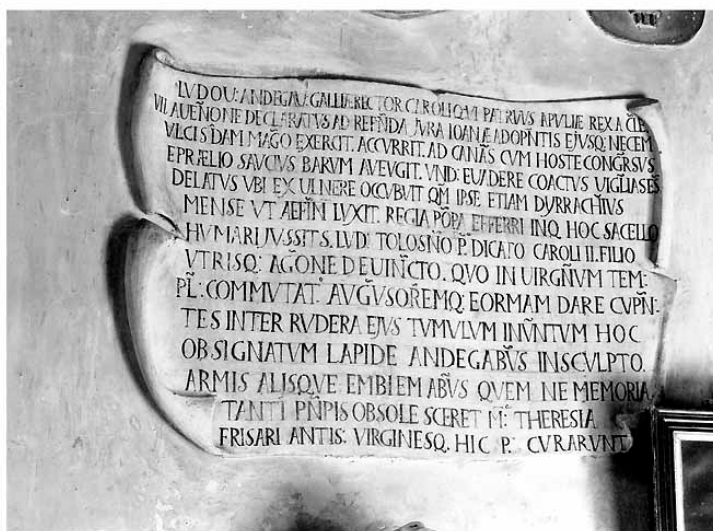 LVDOV: ANDEGAV: GALLIÆ RECTOR CAROLI QVI PATRVVS APVLIÆ REX A CLE
VII AVEÑONE DECLARATVS AD REFÑDA JVRA IOANÆ ADOPÑTIS EJVSQ; NECEM
VLCISDAM MAGO EXERCIT. ACCVRRIT. AD CANAS CVM HOSTE CONGRSVS
E PRÆLIO SAVCIVS BARVM AVEVGIT. VND: EVADERE COACTVS VIGLIAS
DELATVS VBI EX VLNERE OCCVBVIT QM IPSE ETIAM DYRRACHIVS
MENSE VT AEFIN LVXIT. REGIA POPA EFFERRI INQ. HOC SACELLO
HVMARI JVSSIT S. LVD: TOLOSÑO P. DICATO CAROLI II. FILIO
VTRISQ: AGONE DEVIÑCTO. QVO IN VIRGÑVM TEM-
PL: COMMVTAT. AVGVSOREMQ; EORMAM DARE CVPÑ-
TES INTER RVDERA EJVS TVMVLVM INÑNTVM HOC
OBSIGNATVM LAPIDE ANDEGABVS INSCVLPTO.
ARMIS ALISQVE EMBIEMABVS QVEM NE MEMORIA
TANTI PÑPIS OBSOLESCERET M: THERESIA
FRISARI ANTIS: VIRGINESQ. HIC P: CVRARVNT